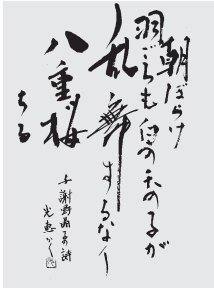 朝ぼらけ
羽ごろも白の天の子が
乱舞するなり
八重桜
ちる
与謝野晶子詩